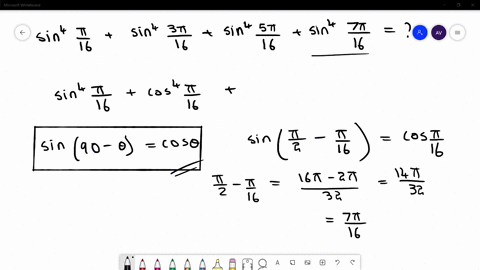 Microsoft Whiteboard
sin⁴ π/16 + sin⁴ 3π/16 + sin⁴ 5π/16 + sin⁴ 7π/16 = ?
AV
sin⁴ π/16 + cos⁴ π/16 +
sin (90 - θ) = cosθ
sin (π/2 - π/16) = cos π/16
π/2 - π/16 = (16π - 2π)/32 = 14π/32
= 7π/16